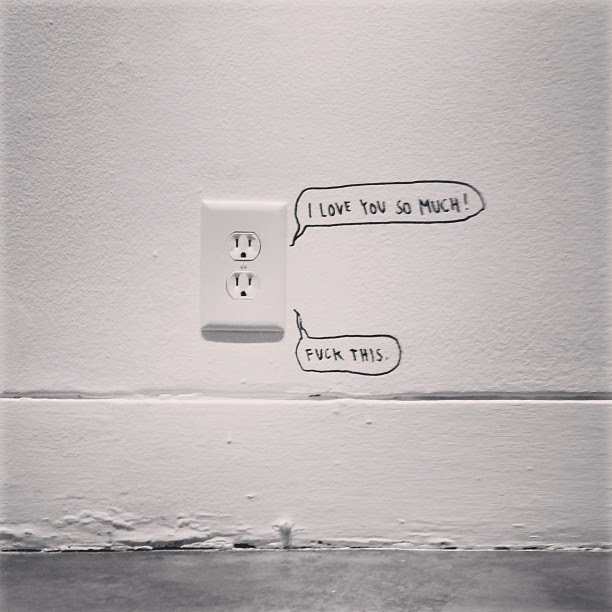 I LOVE YOU SO MUCH!
FUCK THIS.